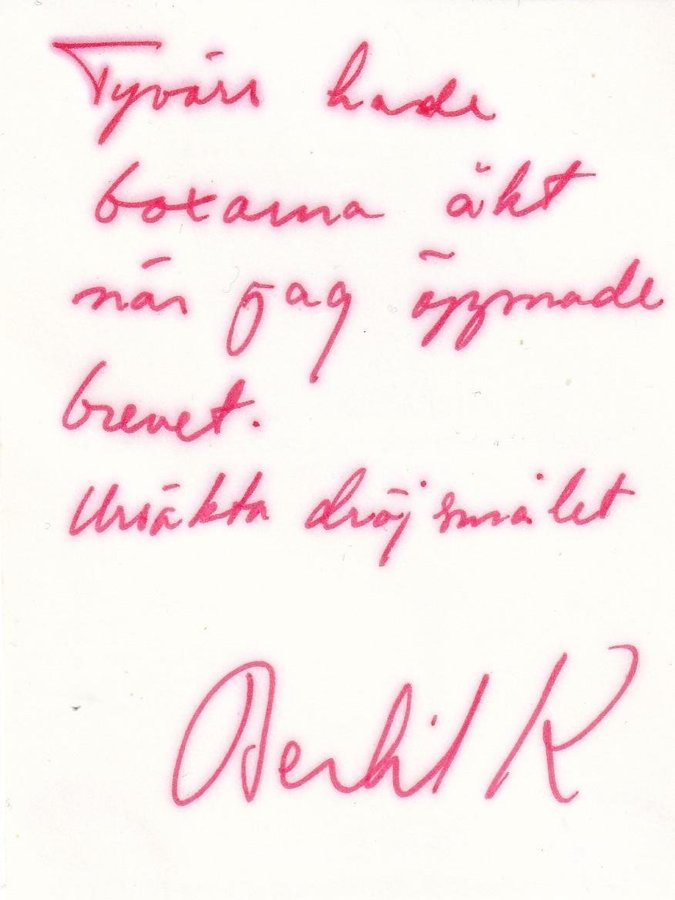 Tyvärr hade
boxarna åkt
när jag öppnade
brevet.
Ursäkta dröjsmålet
Bertil K